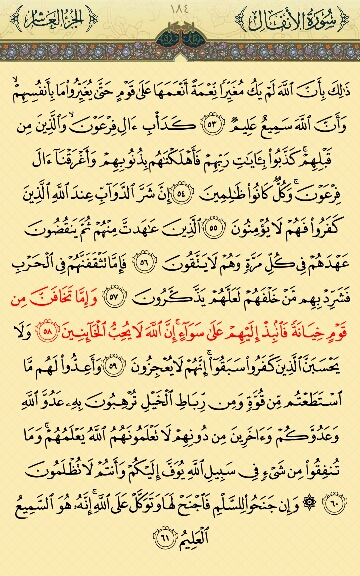 الجزء العاشر ١٨٤ سورة الأنفال
ذَٰلِكَ بِأَنَّ ٱللَّهَ لَمْ يَكُ مُغَيِّرًا نِّعْمَةً أَنْعَمَهَا عَلَىٰ قَوْمٍ حَتَّىٰ يُغَيِّرُوا۟ مَا بِأَنفُسِهِمْ ۙ
وَأَنَّ ٱللَّهَ سَمِيعٌ عَلِيمٌ ﴿٥٣﴾ كَدَأْبِ ءَالِ فِرْعَوْنَ ۙ وَٱلَّذِينَ مِن
قَبْلِهِمْ ۚ كَذَّبُوا۟ بِـَٔايَـٰتِ رَبِّهِمْ فَأَهْلَكْنَـٰهُم بِذُنُوبِهِمْ وَأَغْرَقْنَآ ءَالَ
فِرْعَوْنَ ۚ وَكُلٌّ كَانُوا۟ ظَـٰلِمِينَ ﴿٥٤﴾ إِنَّ شَرَّ ٱلدَّوَآبِّ عِندَ ٱللَّهِ ٱلَّذِينَ
كَفَرُوا۟ فَهُمْ لَا يُؤْمِنُونَ ﴿٥٥﴾ ٱلَّذِينَ عَـٰهَدتَّ مِنْهُمْ ثُمَّ يَنقُضُونَ
عَهْدَهُمْ فِى كُلِّ مَرَّةٍ وَهُمْ لَا يَتَّقُونَ ﴿٥٦﴾ فَإِمَّا تَثْقَفَنَّهُمْ فِى ٱلْحَرْبِ
فَشَرِّدْ بِهِم مَّنْ خَلْفَهُمْ لَعَلَّهُمْ يَذَّكَّرُونَ ﴿٥٧﴾ وَإِمَّا تَخَافَنَّ مِن
قَوْمٍ خِيَانَةً فَٱنۢبِذْ إِلَيْهِمْ عَلَىٰ سَوَآءٍ ۚ إِنَّ ٱللَّهَ لَا يُحِبُّ ٱلْخَآئِنِينَ ﴿٥٨﴾ وَلَا
يَحْسَبَنَّ ٱلَّذِينَ كَفَرُوا۟ سَبَقُوٓا۟ ۚ إِنَّهُمْ لَا يُعْجِزُونَ ﴿٥٩﴾ وَأَعِدُّوا۟ لَهُم مَّا
ٱسْتَطَعْتُم مِّن قُوَّةٍ وَمِن رِّبَاطِ ٱلْخَيْلِ تُرْهِبُونَ بِهِۦ عَدُوَّ ٱللَّهِ
وَعَدُوَّكُمْ وَءَاخَرِينَ مِن دُونِهِمْ لَا تَعْلَمُونَهُمُ ٱللَّهُ يَعْلَمُهُمْ ۚ وَمَا
تُنفِقُوا۟ مِن شَىْءٍ فِى سَبِيلِ ٱللَّهِ يُوَفَّ إِلَيْكُمْ وَأَنتُمْ لَا تُظْلَمُونَ
﴿٦٠﴾ ۞ وَإِن جَنَحُوا۟ لِلسَّلْمِ فَٱجْنَحْ لَهَا وَتَوَكَّلْ عَلَى ٱللَّهِ ۚ إِنَّهُۥ هُوَ ٱلسَّمِيعُ
ٱلْعَلِيمُ ﴿٦١﴾